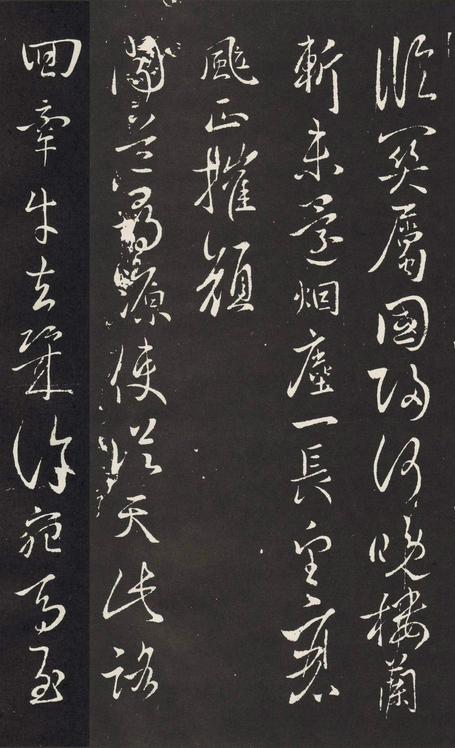 臨關屬國歸何晚樓蘭
斬未還烟塵一長望衰
颯正摧顏
聞道尋源使從天此路
回牽牛去幾許宛馬至